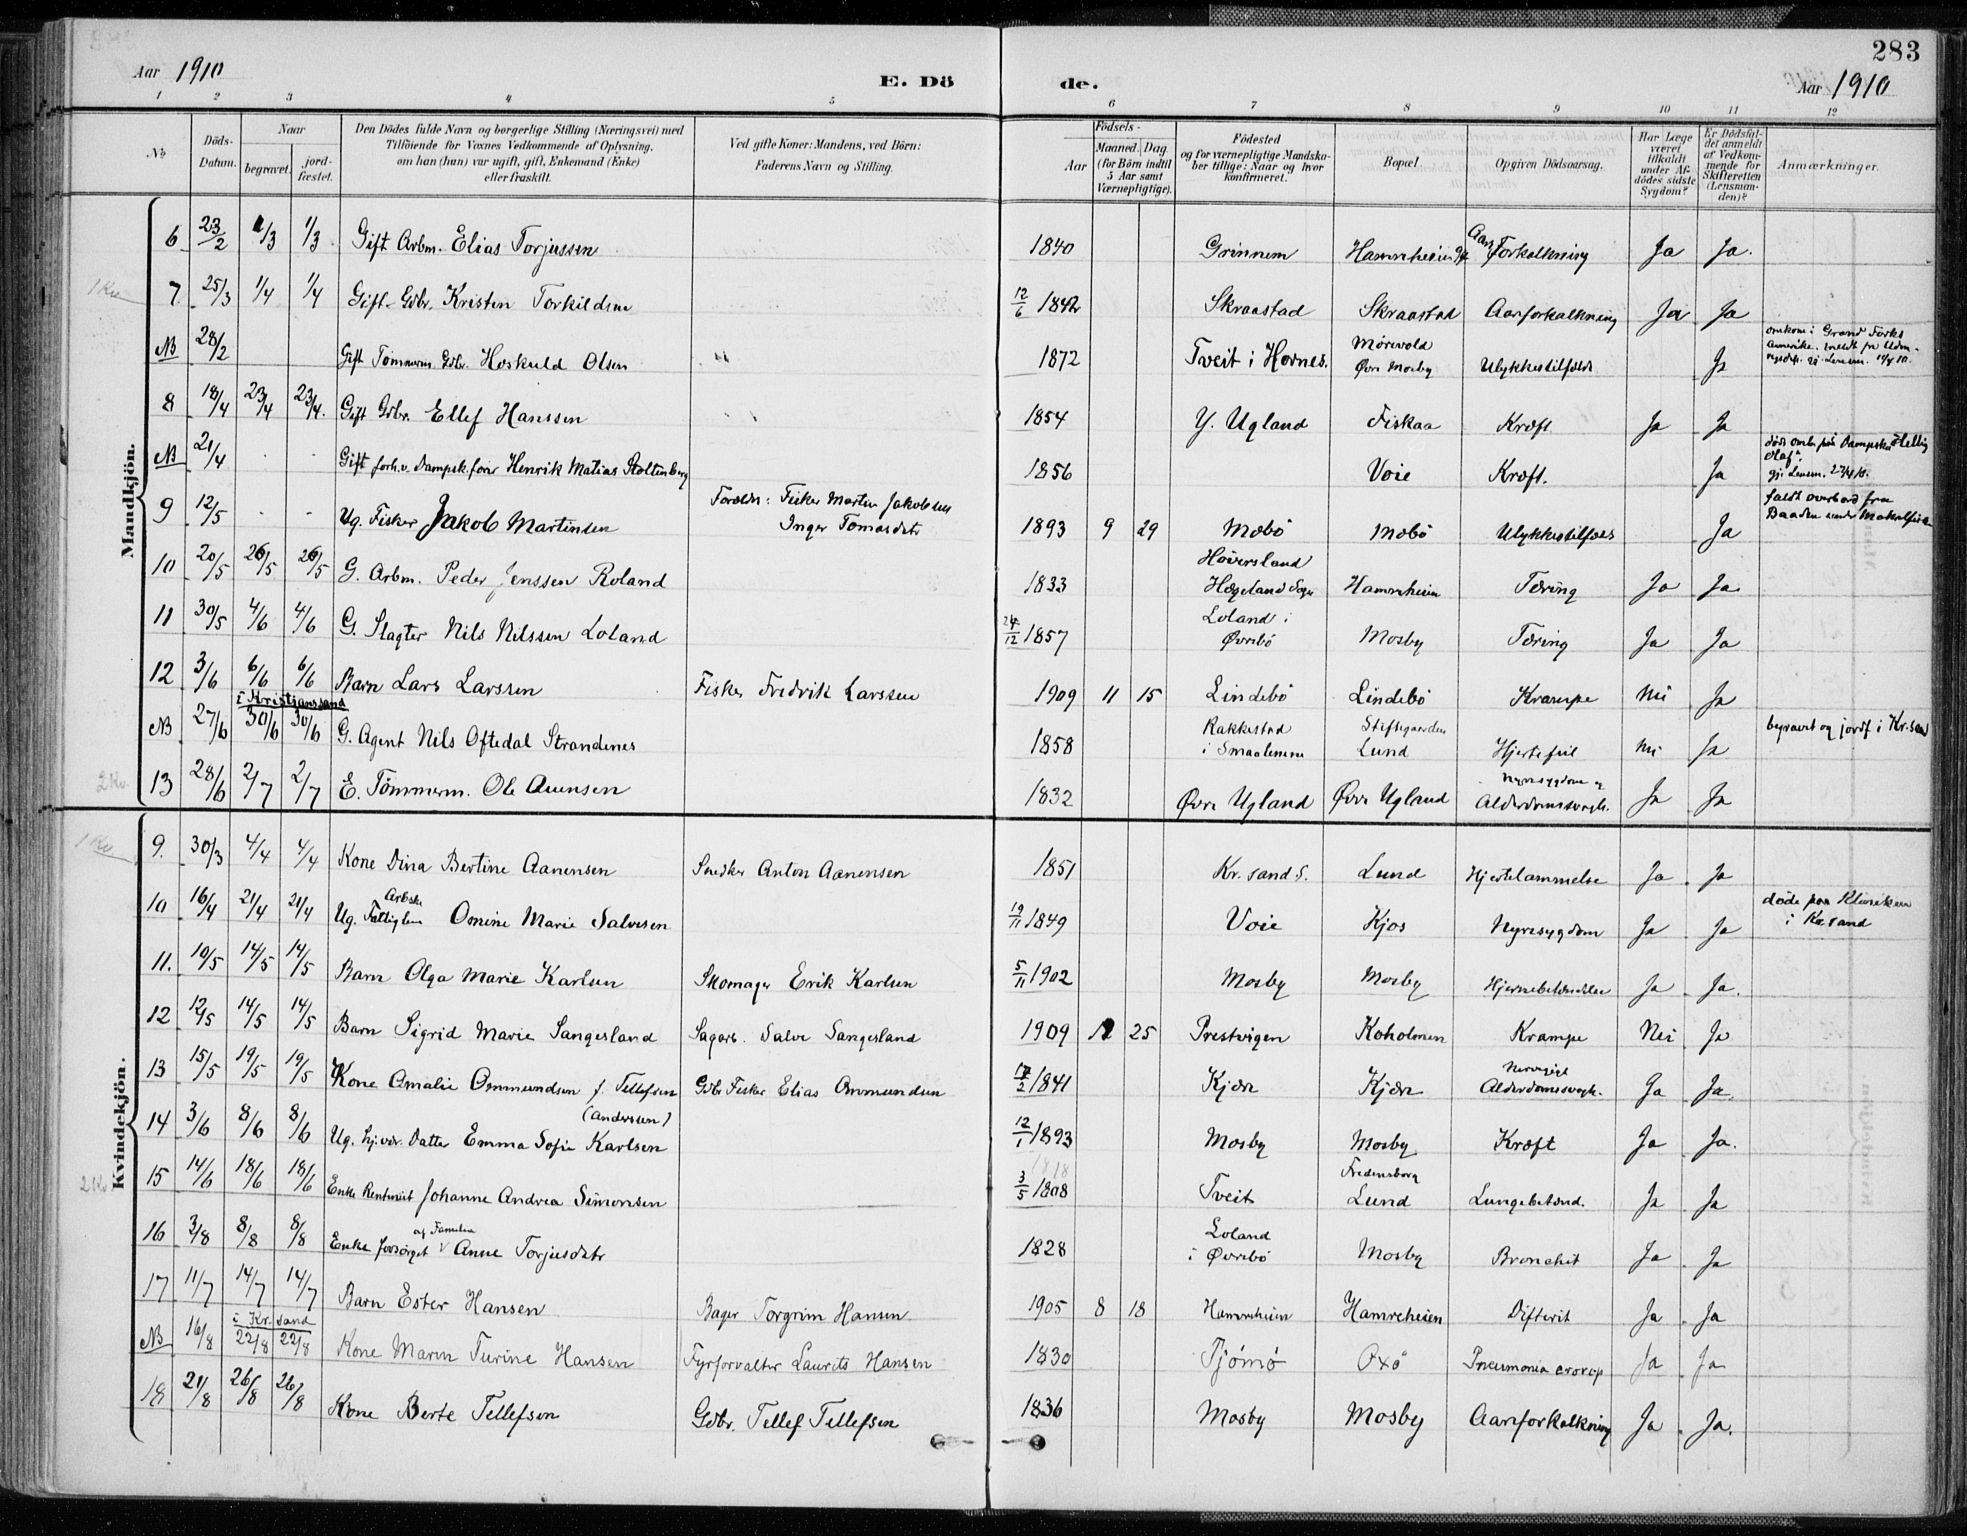 283
Aar 1910 E. Dö de. Aar 1910
1 2 3 4 5 6 7 8 9 10 11 12
No Döds-Datum. Naar begravet. jord-fæstet. Den Dödes fulde Navn og borgerlige Stilling (Næringsvei) med Tilföiende for Voxnes Vedkommende af Oplysning, om han (hun) var ugift, gift, Enkemand (Enke) eller fraskilt. Ved gifte Koner: Mandens, ved Börn: Faderens Navn og Stilling. Födsels- Aar Maaned. Dag (for Börn indtil 5 Aar samt Værnepligtige). Födested og for værnepligtige Mandskaber tillige: Naar og hvor konfirmeret. Bopæl. Opgiven Dödsaarsag. Har Læge været tilkaldt under Afdödes sidste Sygdom? Er Dödsfaldet anmeldt af Vedkommende for Skifteretten (Lensmanden)? Anmærkninger.
Mandkjön.
6 23/2 1/3 1/3 Gift Arbm. Elias Torjussen 1840 Grinnem Hamreheien Aareforkalkning Ja Ja.
1 Kv
7 25/3 1/4 1/4 Gift Gdbr. Kristen Torkildsen 12/6 1842 Skraastad Skraastad Aareforkalkning Ja Ja
NB 28/2 Gift Tømmerm. Gdbr. Hoskuld Olsen 1872 Tveit i Hornes. Mørevold Øvre Mosby Ulykkestilfælde Ja omkom i Grand Forks Amerika.
8 18/4 23/4 23/4. Gift Gdbr. Ellef Hanssen 1854 Y. Ugland Fiskaa Kræft. Ja Ja
NB 21/4 Gift forh.v. Dampsk.fører Henrik Matias Stoltenberg 1856 Voie Kræft. Ja døde omb. paa Dampsk. "Hellig Olaf".
9 12/5 Ug. Fisker Jakob Martinsen Forældre: Fisker Martin Jakobsen Inger Tomasdtr 1893 9 29 Mæbø Mæbø Ulykkestilfælde Ja faldt overbord fra Baaden under Makrelfiske
10 20/5 26/5 26/5 G. Arbm. Peder Jenssen Roland 1833 Høiversland Hægeland Sogn Hamreheien Tæring Ja Ja
11 30/5 4/6 4/6 G. Slagter Nils Nilssen Loland 24/12 1857 Loland i Øvrebø Mosby Tæring Ja Ja
12 3/6 6/6 6/6 Barn Lars Larssen Fisker Fredrik Larssen 1909 11 15 Lindebø Lindebø Krampe Nei Ja
i Kristianssand
NB 27/6 30/6 30/6 G. Agent Nils Oftedal Strandenes 1858 Rakkestad i Smaalenene Stiftsgaarden Lund Hjertefeil Nei Ja begravet og jordf i Kr.sand
2 Kv.
13 28/6 2/7 2/7 E. Tömmerm. Ole Aanensen 1832 Øvre Ugland Øvre Ugland Nyresygdom og Alderdomssvagh. Ja Ja
Kvindekjön.
1 Kv
9. 30/3 4/4 4/4 Kone Dina Bertine Aanensen Snedker Anton Aanensen 1851 Kr.sand S. Lund Hjertelammelse Ja Ja
10 16/4 21/4 21/4 Ug. Fattiglem Arbske Omine Marie Salvesen 19/11 1849 Voie Kjos Nyresygdom Ja Ja døde paa Kliniken i Kr.sand
11. 10/5 14/5 14/5 Barn Olga Marie Karlsen Skomager Erik Karlsen 5/11 1902 Mosby Mosby Hjernebetændelse Ja Ja.
12 12/5 14/5 14/5 Barn Sigrid Marie Sangesland Sagarb. Salve Sangesland 1909 12 25 Prestvigen Koholmen Krampe Nei Ja
13 15/5 19/5 19/5 Kone Amalie Ommundsen f. Tellefsen Gdbr Fisker Elias Ommundsen 17/2 1841 Kjære Kjære Nervegigt Alderdomssvagh. Ja Ja.
14 3/6 8/6 8/6 Ug. hj.vær. Datter Emma Sofie Karlsen (Anderssen) 12/1 1893 Mosby Mosby Kræft Ja Ja.
2 Kv
15 14/6 18/6 18/6 Enke Rentenist Johanne Andrea Simonsen 3/5 1808 1818 Tveit Fredensborg Lund Lungebetænd. Ja Ja
16 3/8 8/8 8/8 Enke forsørget af Familie Anne Torjusdtr 1828 Loland i Øvrebø Mosby Bronchit Ja Ja
17 11/7 14/7 14/7 Barn Ester Hansen Bager Torgrim Hansen 1905 8 18 Hamreheien Hamreheien Difterit Ja Ja
i Kr.sand
NB 16/8 22/8 22/8 Kone Maren Turine Hansen Fyrforvalter Laurits Hansen 1830 Tjömö Oxö Pneumonia crorop Ja Ja
18 21/8 26/8 26/8 Kone Berte Tellefsen Gdbr. Tellef Tellefsen 1836 Mosby Mosby Aareforkalkning Ja Ja.